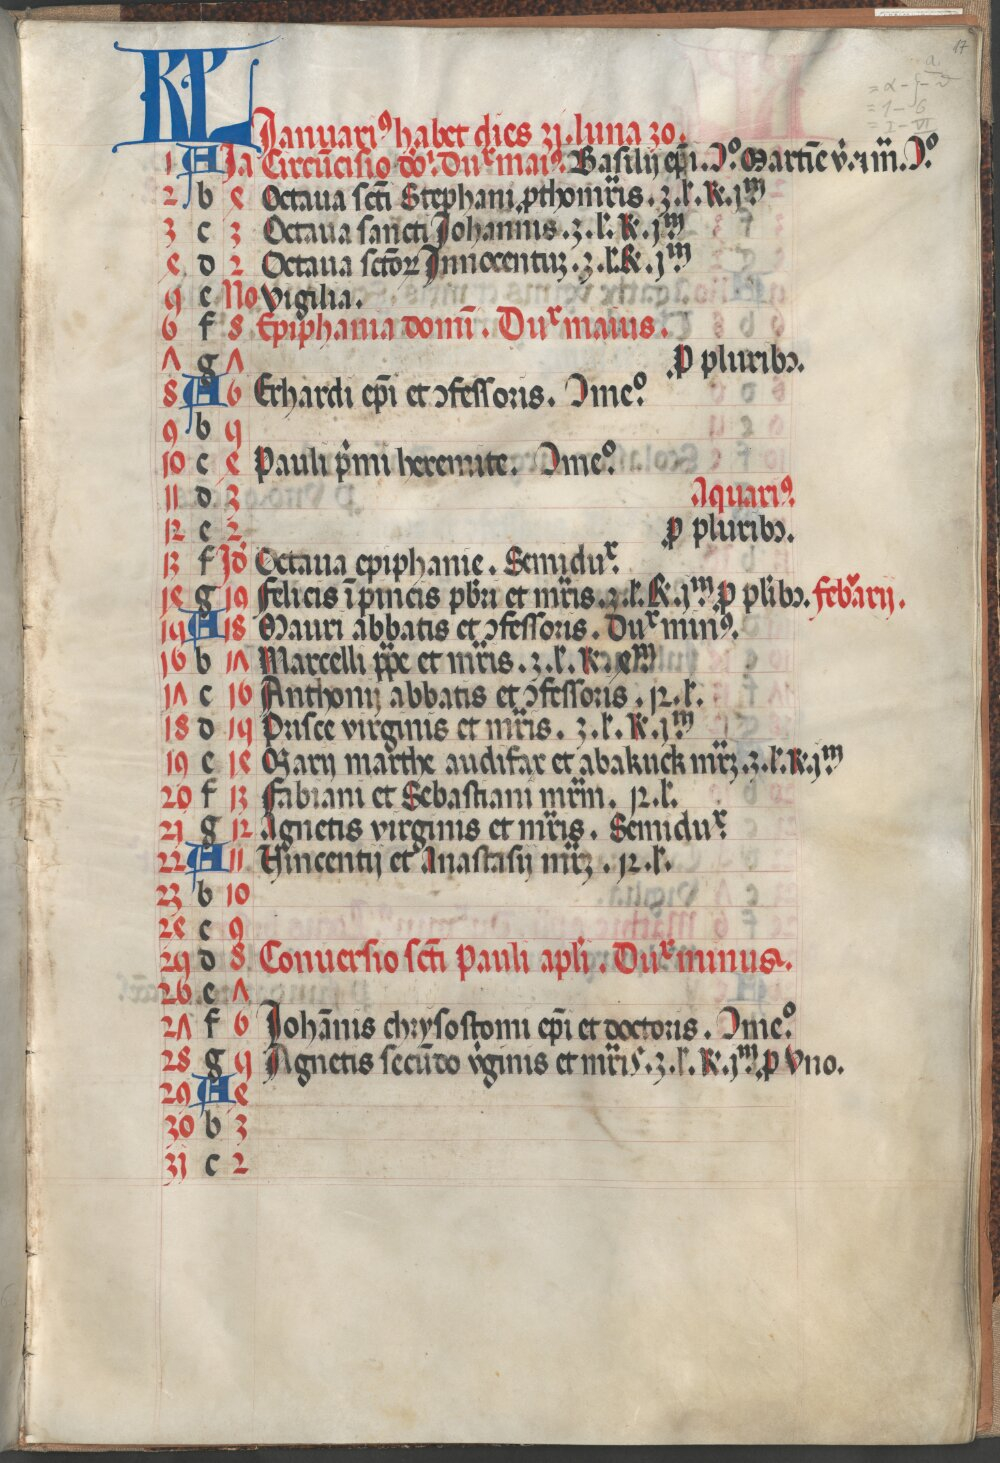 17
KL
Januari⁹ habet dies 31. luna 30.
1 A Ja Circu̅cisio do̅i. Duˣ mai⁹. Basilij ep̅i. Ↄ⁰ Martin̅e v̅.
2 b e Octaua sc̅ti Stephani ꝓthom̅ris. 3. l̅. R. jᵐ
3 c 3 Octaua sancti Johannis. 3. l̅. R. jᵐ
4 d 2 Octaua sc̅toꝝ Innocentuz. 3. l̅. R. jᵐ
5 e No Vigilia.
6 f 8 Epiphania domi̅. Duˣ maius.
7 g 7 P pluribꝫ.
8 A 6 Erhardi ep̅i et ↄfessoris. Ↄme⁰.
9 b 5
10 c 4 Pauli pⁱmi heremite. Ↄme⁰.
11 d 3 Aquari⁹.
12 e 2 P pluribꝫ.
13 f Jd̅ Octaua epiphanie. Semiduˣ
14 g 19 Felicis i̅ pincis pb̅ri et m̅ris. 3. l̅. R. jᵐ P pl̅ibꝫ. feb̅rarij.
15 A 18 Mauri abbatis et ↄfessoris. Duˣ min⁹.
16 b 17 Marcelli pp̅e et m̅ris. 3. l̅. R.
17 c 16 Anthonij abbatis et ↄfessoris. 12. l̅.
18 d 15 Prisce virginis et m̅ris. 3. l̅. R. jᵐ
19 e 14 Marij marthe audifax et abakuck m̅rꝫ. 3. l̅. R. jᵐ
20 f 13 Fabiani et Sebastiani mr̅m. 12. l̅.
21 g 12 Agnetis virginis et m̅ris. Semiduˣ.
22 A 11 Vincentij et Anastasij m̅rꝫ. 12. l̅.
23 b 10
24 c 9
25 d 8 Conuersio sc̅ti Pauli apl̅i Duˣ minus.
26 e 7
27 f 6 Joha̅nis chrysostomi ep̅i et doctoris. Ↄme⁰.
28 g 5 Agnetis secu̅do v̅ginis et m̅ris. 3. l̅. R. jᵐ. P Vno.
29 A 4
30 b 3
31 c 2